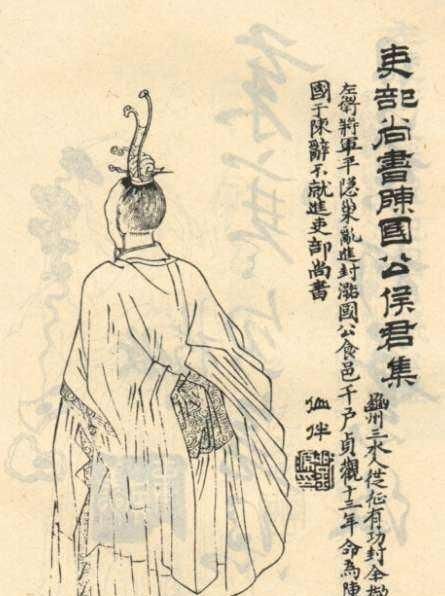 吏部尚書陳國公侯君集
豳州三水人從征有功封全
左衛將軍平隱巢亂進封潞國公食邑千戶貞觀十三年命為陳
國于陳辭不就進吏部尚書
仙伴